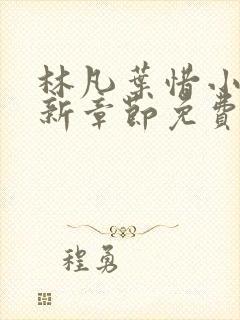 林凡葉惜小
新章節免費
程勇